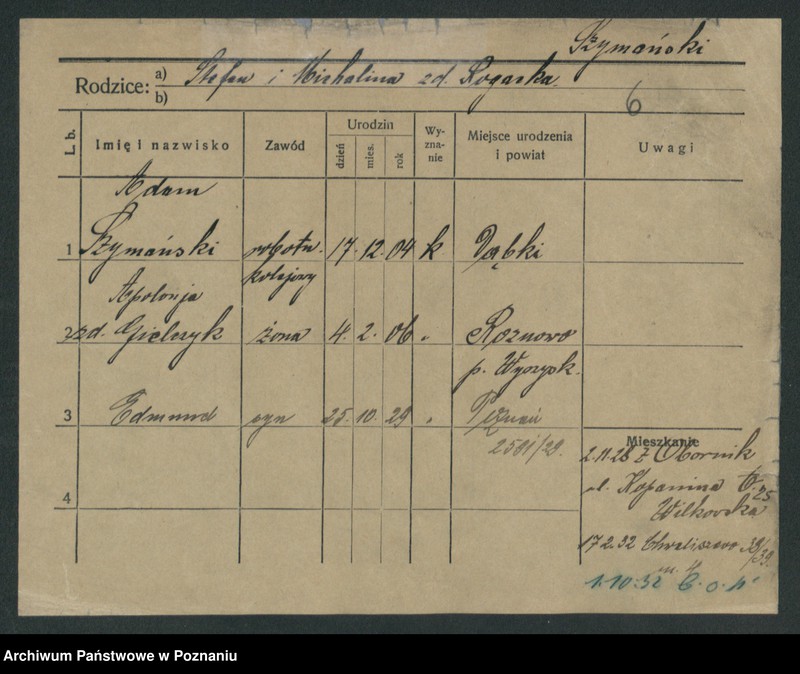 Szymański
Rodzice: a) Stefan i Michalina zd. Rogacka
b)
6
L. b.
Imię i nazwisko
Zawód
Urodzin
dzień
mies.
rok
Wy-
zna-
nie
Miejsce urodzenia
i powiat
Uwagi
Adam
1 Szymański robotn. 17. 12. 04 k Dąbki
kolejowy
Apolonja
2 zd. Gielczyk żona 4. 2. 06 " Roznowo
p. Wyrzysk.
3 Edmund syn 25. 10. 29 " Poznań
2501/29.
Mieszkanie
2.11.28 z Obornik
ul. Kopanina 25
Wilkowska
4
17 2.32 Chwaliszewo 38/39.
m. 4
1.10.32
Archiwum Państwowe w Poznaniu